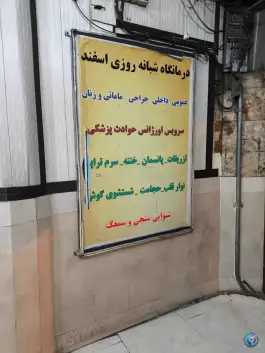 درمانگاه شبانه روزی اسفند
عمومی داخلی جراحی مامائی و زنان
سرویس اورژانس حوادث پزشکی
تزریقات _ پانسمان _ ختنه _ سرم تراپی
نوار قلب _ حجامت _ شستشوی گوش
شنوایی سنجی و سمعک